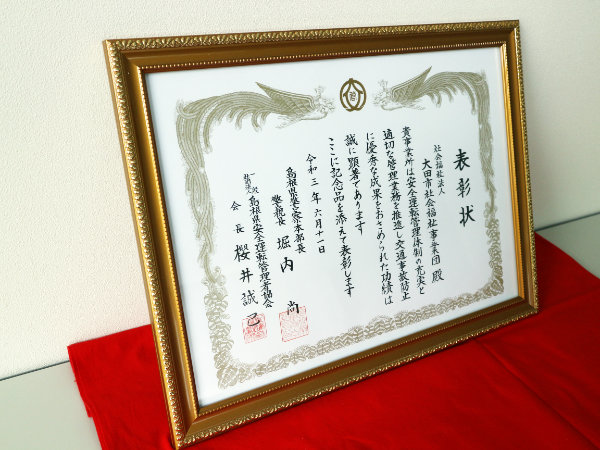 表彰状
社会福祉法人
大田市社会福祉事業団 殿
貴事業所は安全運転管理体制の充実と
適切な管理業務を推進し交通事故防止
に優秀な成果をおさめられた功績は
誠に顕著であります
ここに記念品を添えて表彰します
令和三年六月十一日
島根県警察本部長
警視長 堀内 尚
一般社団法人 島根県安全運転管理者協会
会長 櫻井誠己